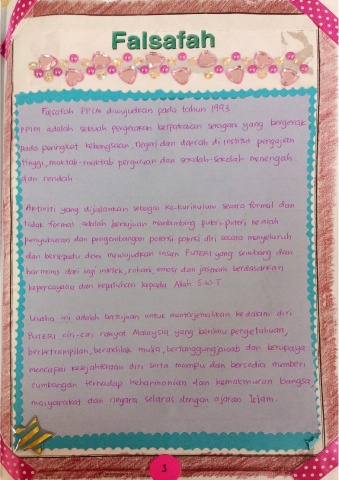 Falsafah
Falsafah PPIM diwujudkan pada tahun 1993.
PPIM adalah sebuah pergerakan berpakaian seragam yang bergerak
pada peringkat kebangsaan, negeri dan daerah di institut pengajian
tinggi, maktab-maktab perguruan dan sekolah-sekolah menengah
dan rendah.
Aktiviti yang dijalankan sebagai ko-kurikulum secara formal dan
tidak formal adalah bertujuan membimbing puteri-puteri ke arah
penyuburan dan pengembangan potensi diri secara menyeluruh
dan bersepadu demi mewujudkan insan PUTERI yang seimbang dan
harmonis dari segi intelek, rohani, emosi dan jasmani berdasarkan
kepercayaan dan kepatuhan kepada Allah S.W.T.
Usaha ini adalah bertujuan untuk menterjemahkan ke dalam diri
PUTERI ciri-ciri rakyat Malaysia yang berilmu pengetahuan,
berketrampilan, berakhlak mulia, bertanggungjawab dan berupaya
mencapai kesejahteraan diri serta mampu dan bersedia memberi
sumbangan terhadap keharmonian dan kemakmuran bangsa,
masyarakat dan negara selaras dengan ajaran Islam.
3